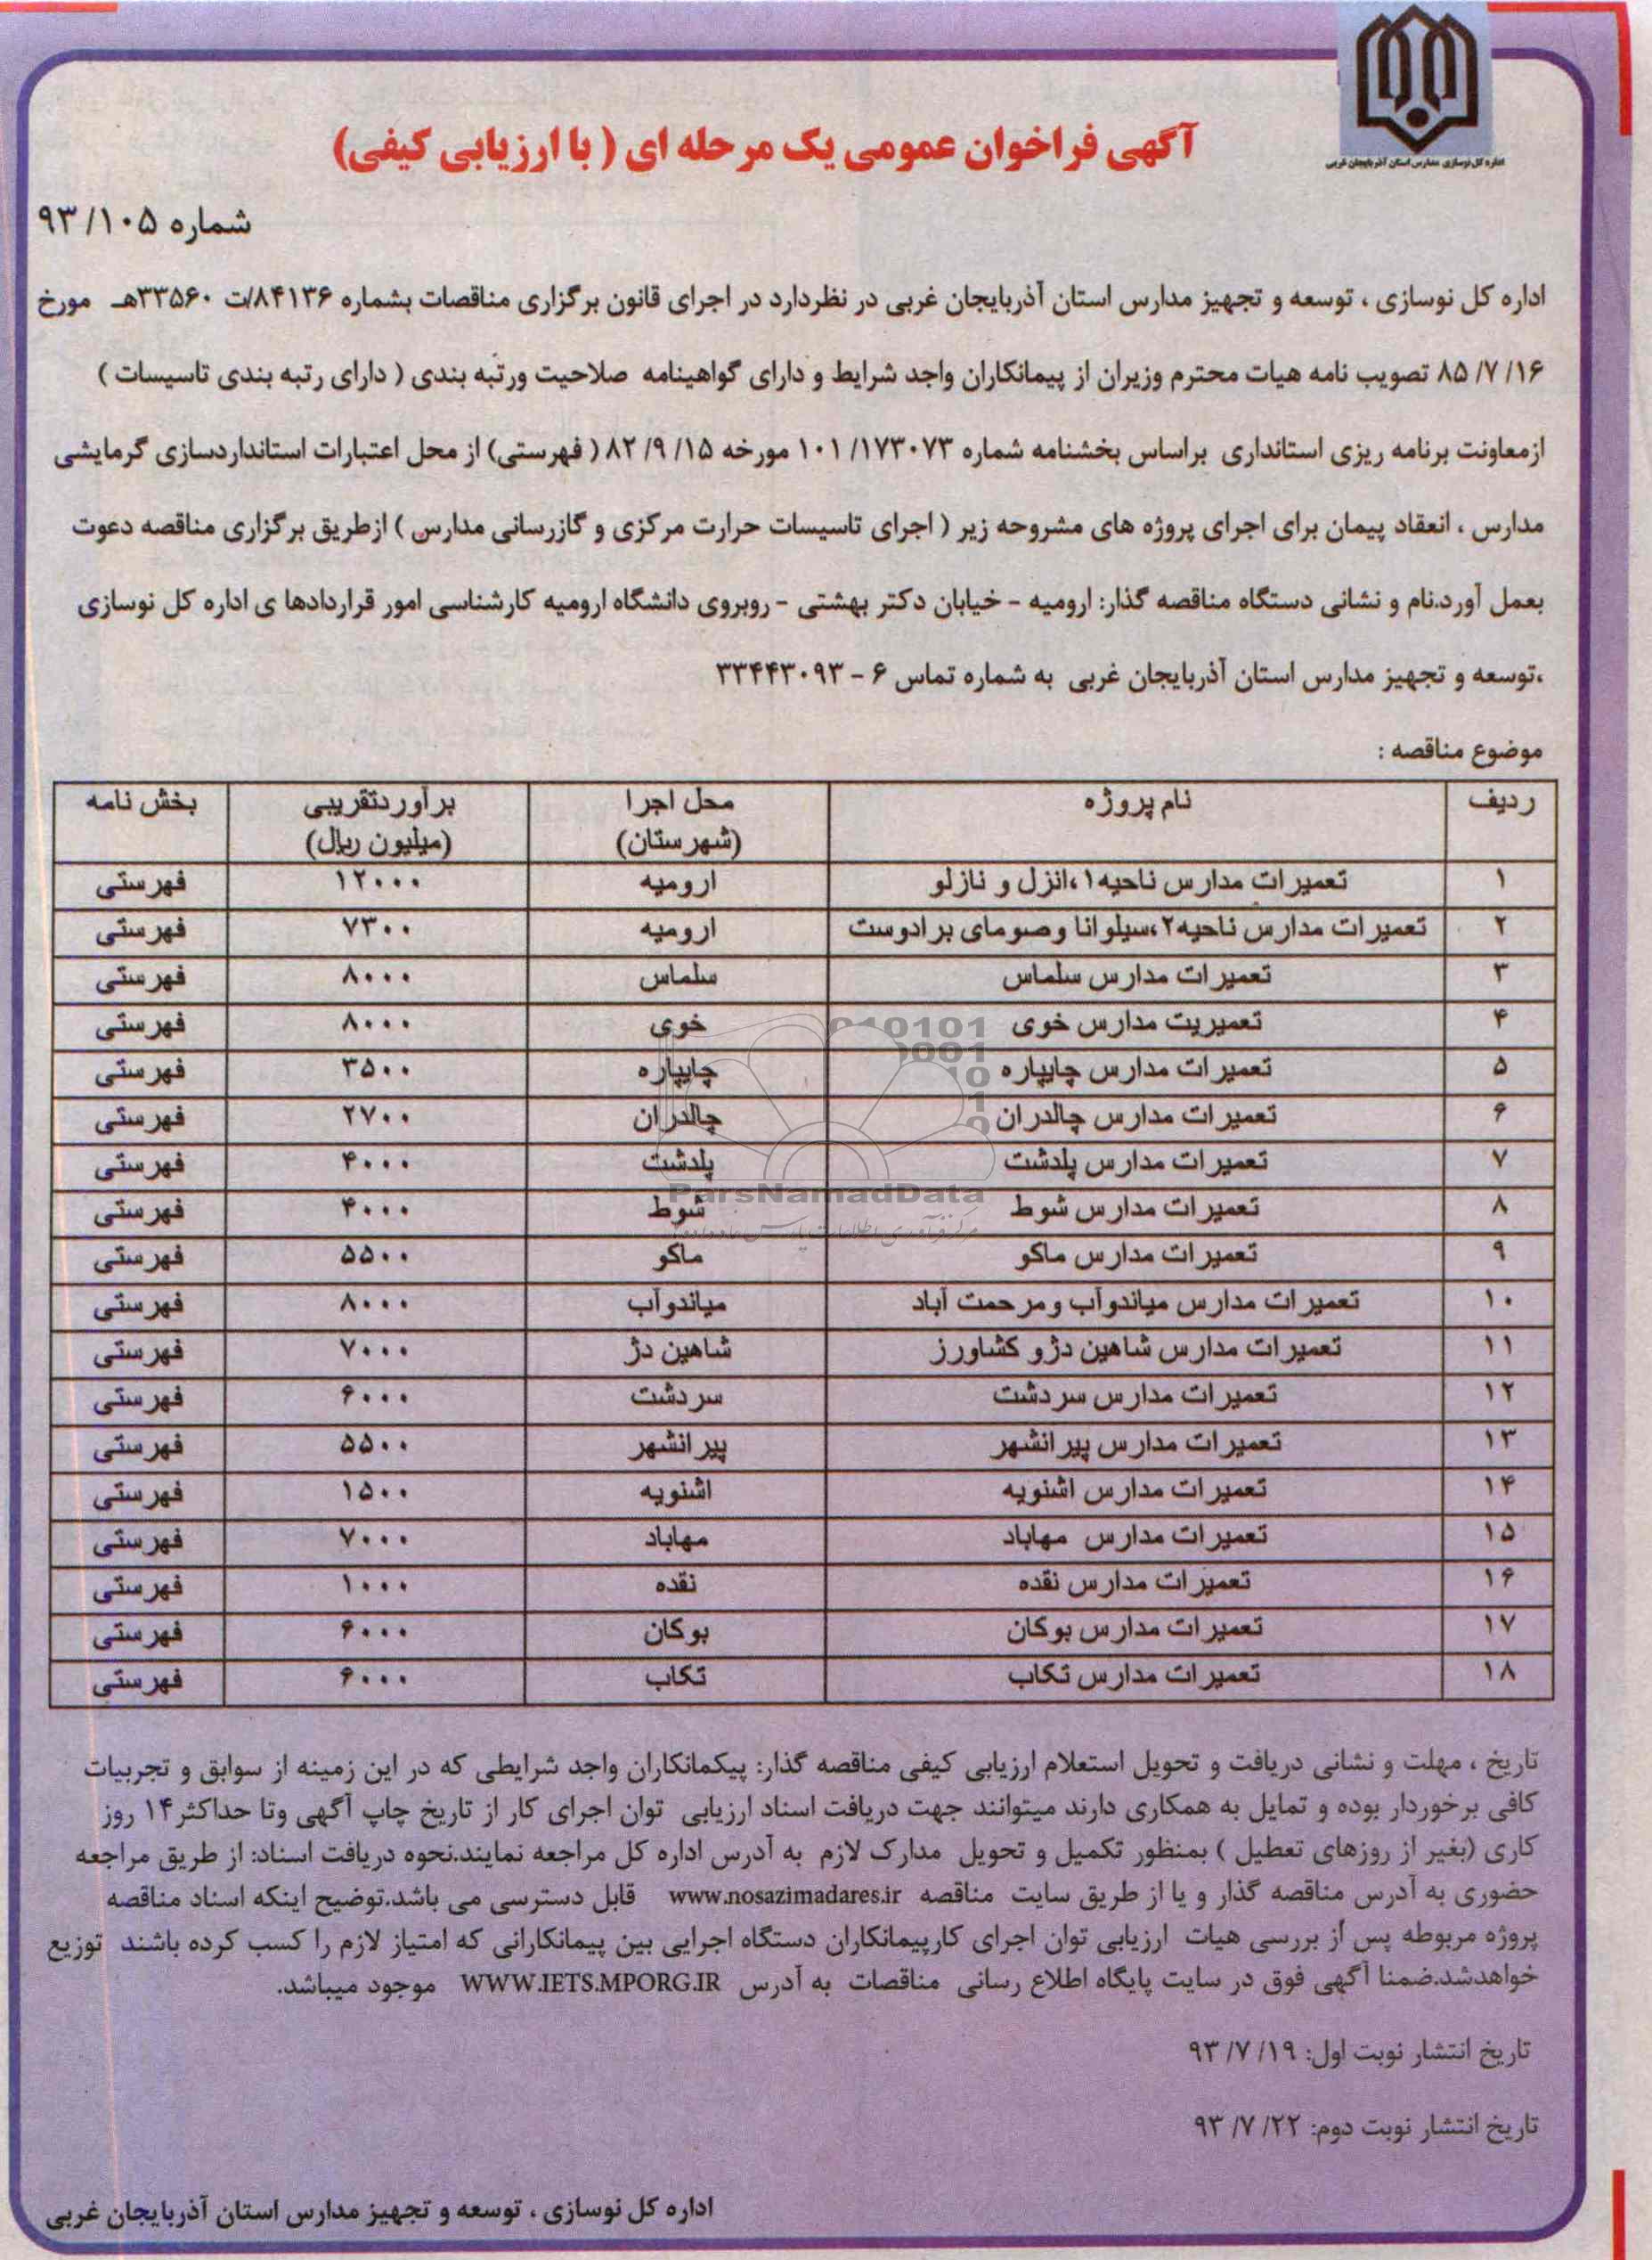 اداره کل نوسازی مدارس استان آذربایجان غربی
آگهی فراخوان عمومی یک مرحله ای ( با ارزیابی کیفی)
شماره ۹۳/۱۰۵
اداره کل نوسازی ، توسعه و تجهیز مدارس استان آذربایجان غربی در نظردارد در اجرای قانون برگزاری مناقصات بشماره ۸۴۱۳۶/ت ۳۳۵۶۰هـ مورخ
۸۵/۷/۱۶ تصویب نامه هیات محترم وزیران از پیمانکاران واجد شرایط و دارای گواهینامه صلاحیت ورتبه بندی ( دارای رتبه بندی تاسیسات )
ازمعاونت برنامه ریزی استانداری براساس بخشنامه شماره ۱۰۱/۱۷۳۰۷۳ مورخه ۸۲/۹/۱۵ ( فهرستی) از محل اعتبارات استانداردسازی گرمایشی
مدارس ، انعقاد پیمان برای اجرای پروژه های مشروحه زیر ( اجرای تاسیسات حرارت مرکزی و گازرسانی مدارس ) ازطریق برگزاری مناقصه دعوت
بعمل آورد.نام و نشانی دستگاه مناقصه گذار: ارومیه - خیابان دکتر بهشتی - روبروی دانشگاه ارومیه کارشناسی امور قراردادها ی اداره کل نوسازی
،توسعه و تجهیز مدارس استان آذربایجان غربی به شماره تماس ۶ - ۳۳۴۴۳۰۹۳
موضوع مناقصه :
ردیف نام پروژه محل اجرا (شهرستان) برآوردتقریبی (میلیون ریال) بخش نامه
۱ تعمیرات مدارس ناحیه۱،انزل و نازلو ارومیه ۱۲۰۰۰ فهرستی
۲ تعمیرات مدارس ناحیه۲،سیلوانا وصومای برادوست ارومیه ۷۳۰۰ فهرستی
۳ تعمیرات مدارس سلماس سلماس ۸۰۰۰ فهرستی
۴ تعمیریت مدارس خوی خوی ۸۰۰۰ فهرستی
۵ تعمیرات مدارس چایپاره چایپاره ۳۵۰۰ فهرستی
۶ تعمیرات مدارس چالدران چالدران ۲۷۰۰ فهرستی
۷ تعمیرات مدارس پلدشت پلدشت ۴۰۰۰ فهرستی
۸ تعمیرات مدارس شوط شوط ۴۰۰۰ فهرستی
۹ تعمیرات مدارس ماکو ماکو ۵۵۰۰ فهرستی
۱۰ تعمیرات مدارس میاندوآب ومرحمت آباد میاندوآب ۸۰۰۰ فهرستی
۱۱ تعمیرات مدارس شاهین دژو کشاورز شاهین دژ ۷۰۰۰ فهرستی
۱۲ تعمیرات مدارس سردشت سردشت ۶۰۰۰ فهرستی
۱۳ تعمیرات مدارس پیرانشهر پیرانشهر ۵۵۰۰ فهرستی
۱۴ تعمیرات مدارس اشنویه اشنویه ۱۵۰۰ فهرستی
۱۵ تعمیرات مدارس مهاباد مهاباد ۷۰۰۰ فهرستی
۱۶ تعمیرات مدارس نقده نقده ۱۰۰۰ فهرستی
۱۷ تعمیرات مدارس بوکان بوکان ۶۰۰۰ فهرستی
۱۸ تعمیرات مدارس تکاب تکاب ۶۰۰۰ فهرستی
ParsNamadData
تاریخ ، مهلت و نشانی دریافت و تحویل استعلام ارزیابی کیفی مناقصه گذار: پیکمانکاران واجد شرایطی که در این زمینه از سوابق و تجربیات
کافی برخوردار بوده و تمایل به همکاری دارند میتوانند جهت دریافت اسناد ارزیابی توان اجرای کار از تاریخ چاپ آگهی وتا حداکثر۱۴ روز
کاری (بغیر از روزهای تعطیل ) بمنظور تکمیل و تحویل مدارک لازم به آدرس اداره کل مراجعه نمایند.نحوه دریافت اسناد: از طریق مراجعه
حضوری به آدرس مناقصه گذار و یا از طریق سایت مناقصه www.nosazimadares.ir قابل دسترسی می باشد.توضیح اینکه اسناد مناقصه
پروژه مربوطه پس از بررسی هیات ارزیابی توان اجرای کارپیمانکاران دستگاه اجرایی بین پیمانکارانی که امتیاز لازم را کسب کرده باشند توزیع
خواهدشد.ضمنا آگهی فوق در سایت پایگاه اطلاع رسانی مناقصات به آدرس WWW.IETS.MPORG.IR موجود میباشد.
تاریخ انتشار نوبت اول: ۹۳/۷/۱۹
تاریخ انتشار نوبت دوم: ۹۳/۷/۲۲
اداره کل نوسازی ، توسعه و تجهیز مدارس استان آذربایجان غربی